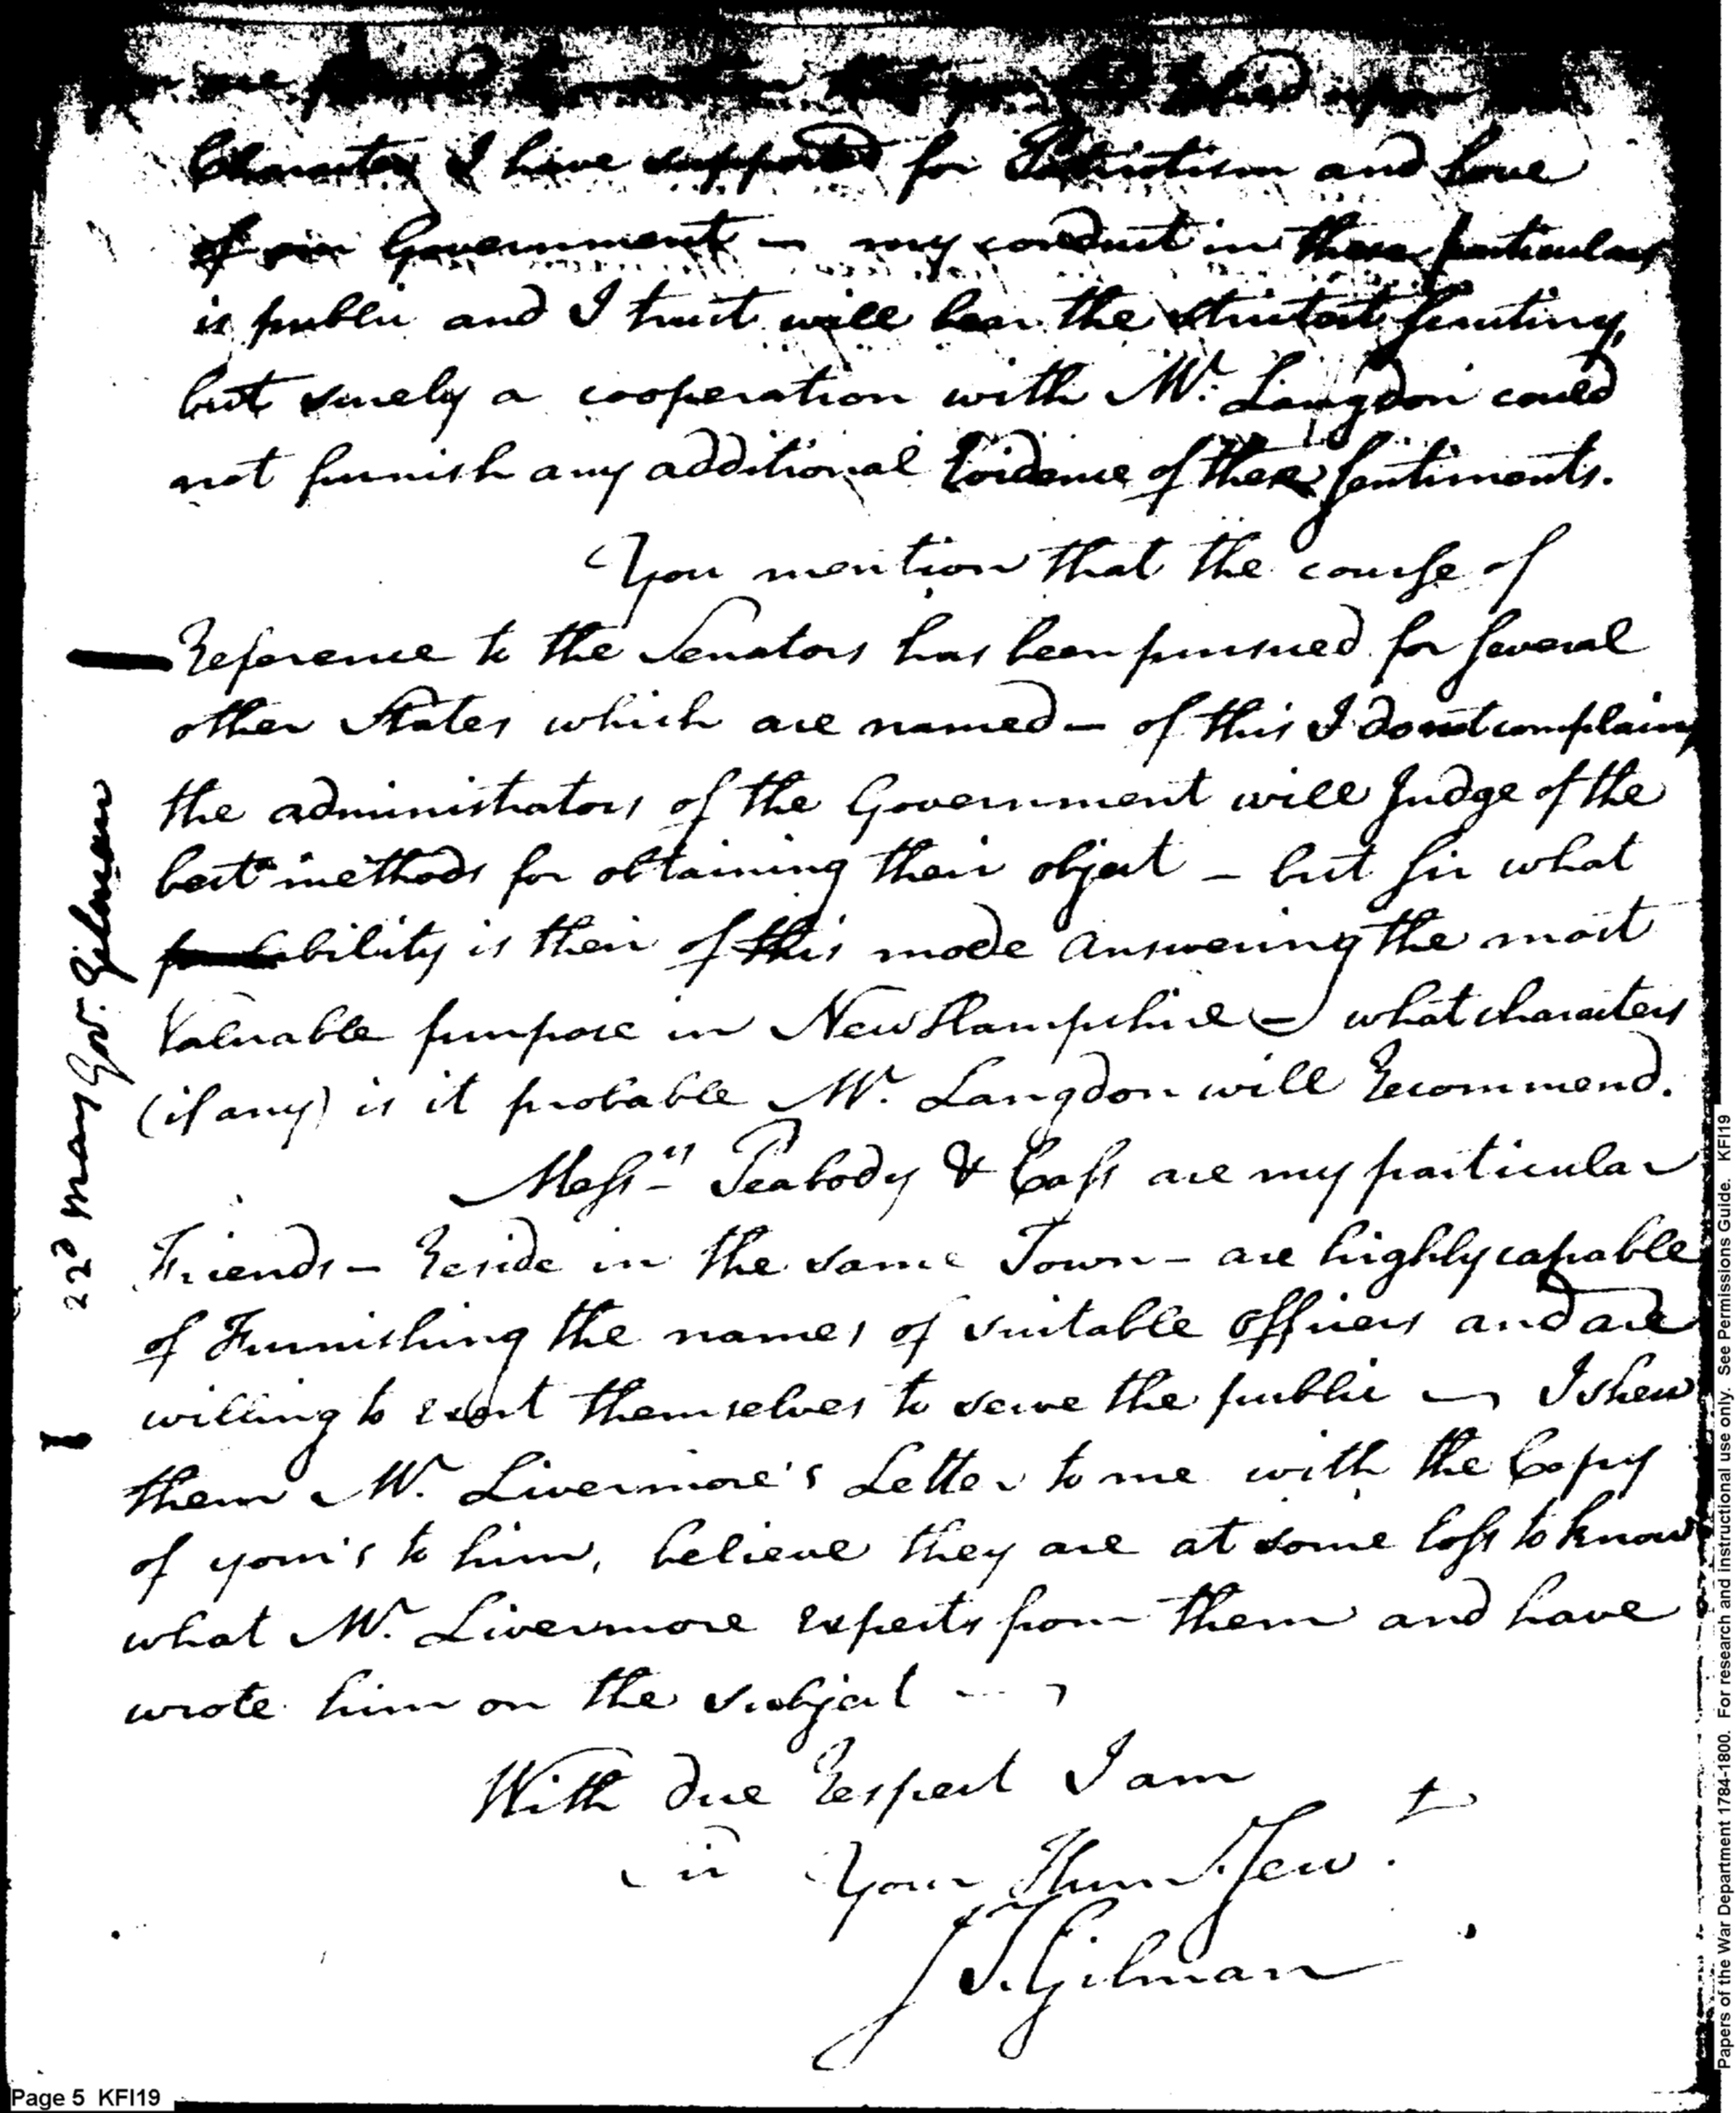 Character I have supported for Patriotism and love
of our Government – my conduct in these particulars
is public and I trust will bear the strictest scrutiny,
but surely a cooperation with Mr. Langdon could
not furnish any additional Evidence of these sentiments.
You mention that the course of
Reference to the Senators has been pursued for several
other States which are named – of this I do not complain,
the administrators of the Government will Judge of the
best methods for obtaining their object – but sir what
probability is their of this mode answering the most
Valuable purpose in New Hampshire – what characters
(if any) is it probable Mr. Langdon will Recommend.
Messrs Peabody & Cass are my particular
Friends – Reside in the same Town – are highly capable
of Furnishing the names of suitable officers and are
willing to exert themselves to serve the public – I shew
them Mr. Livermore's Letter to me with the Copy
of your's to him, believe they are at some loss to know
what Mr. Livermore expects from them and have
wrote him on the subject –
With due Respect I am
Sir Your Hum Servt.
J T. Gilman
22d May Gov. Gilman
Page 5 KFI19
Papers of the War Department 1784-1800. For research and instructional use only. See Permissions Guide. KFI19